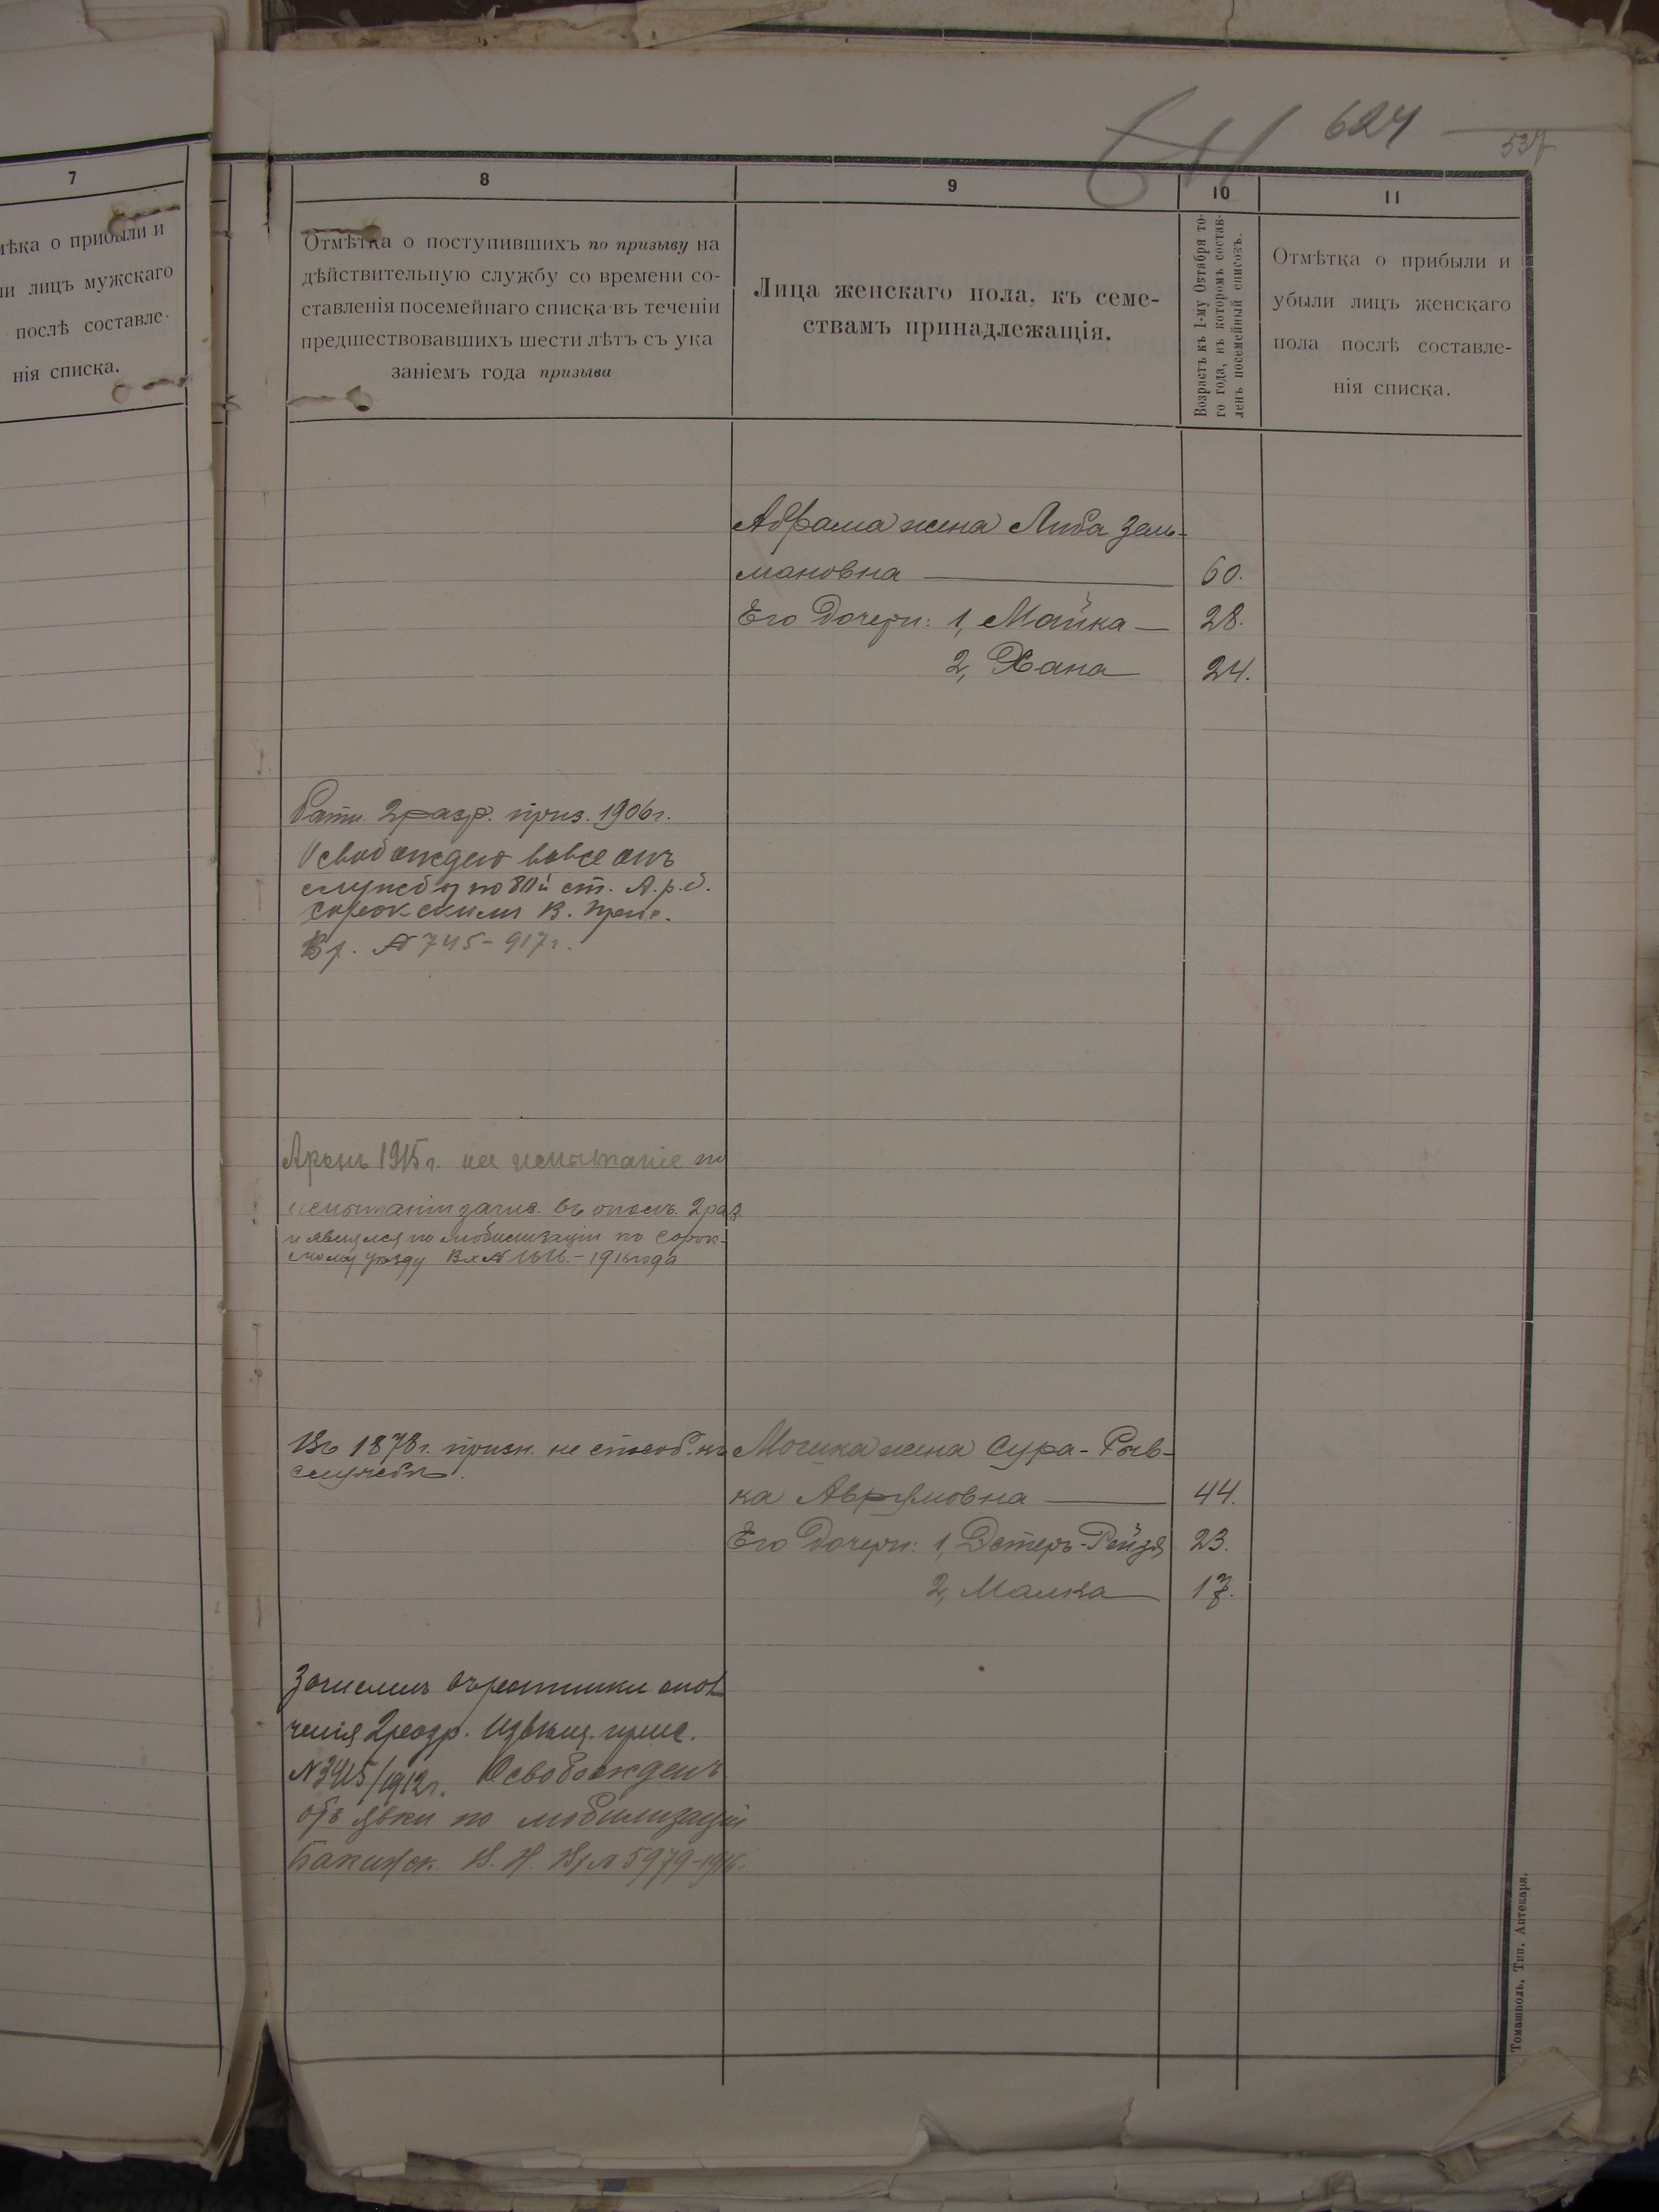 624
537
7
8
9
10
11
мѣка о прибыли и
ли лицъ мужскаго
послѣ составле-
нія списка.
Отмѣтка о поступившихъ по призыву на
дѣйствительную службу со времени со-
ставленія посемейнаго списка въ теченіи
предшествовавшихъ шести лѣтъ съ ука
заніемъ года призыва
Лица женскаго пола, къ семе-
ствамъ принадлежащія.
Возрастъ къ 1-му Октября то-
го года, въ которомъ состав-
ленъ посемейный списокъ.
Отмѣтка о прибыли и
убыли лицъ женскаго
пола послѣ составле-
нія списка.
Абрама жена Либа Зель-
мановна 60.
Его дочери: 1, Майка 28.
2, Хана 24.
Ратн. 2 разр. приз. 1906 г.
Освобожденъ вовсе отъ
службы по 80й ст. А. р. б.
Сорокскимъ В. прис.
Вх. № 745-917 г.
Аронъ 1915 г. на испытаніе по
испытаніи зачис. въ ополч. 2 раз.
и явился по мобилизаціи по Сорок-
скому уѣзду Вх № 1616.-1916 года
Въ 1878 г. призн. не способ. къ
службѣ.
Мошка жена Сура-Рыв-
ка Аврумовна 44.
Его дочери: 1, Эстеръ-Рейзя 23.
2, Малка 17.
Зачисленъ въ ратники опол
ченія 2 разр. Извѣщ. прис.
№ 3415/1912 г. Освобожденъ
отъ явки по мобилизаціи
Бакинск. В. Н. Вх № 5979-1916.
Томашполь, Тип. Аптекаря.